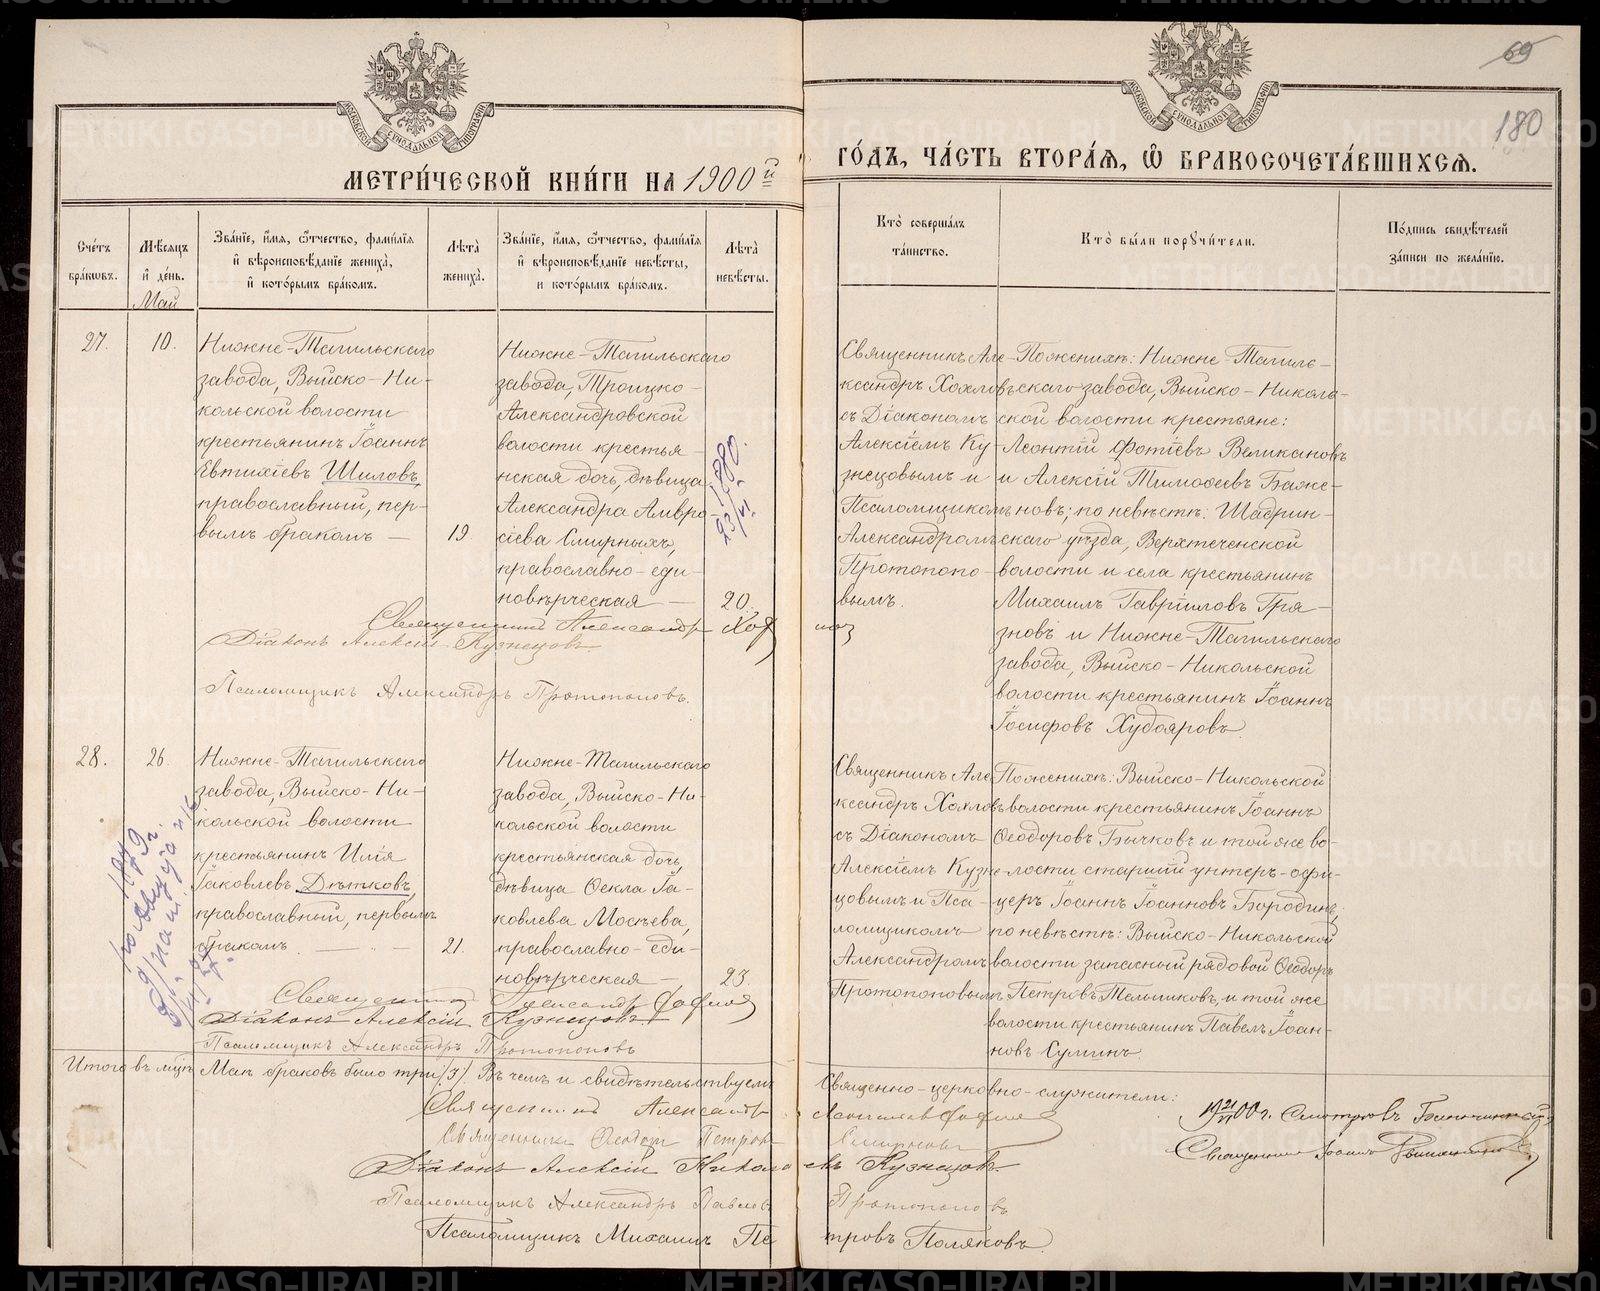 69
180
МЕТРИ́ЧЕСКОЙ КНИ́ГИ НА 1900й
ГО́ДЪ, ЧА́СТЬ ВТОРА́Ѧ, Ѽ БРАКОСОЧЕТА́ВШИХСѦ.
Сче́тъ бра́кѡвъ.
Мѣ́сѧцъ и҆ де́нь.
Май
Зва́нїе, и҆́мѧ, ѻ҆́тчество, фами́лїѧ
и҆ вѣроисповѣ́данїе жениха̀,
и҆ кото́рымъ бра́комъ.
Лѣта̀ жениха̀.
Зва́нїе, и҆́мѧ, ѻ҆́тчество, фами́лїѧ
и҆ вѣроисповѣ́данїе невѣ́сты,
и кото́рымъ бра́комъ.
Лѣта̀ невѣ́сты.
Кто̀ соверша́лъ
та́инство.
Кто̀ бы́ли порꙋчи́тели.
По́дпись свидѣ́телей
за́писи по жела́нїю.
27.
10.
Нижне-Тагильскаго
завода, Выйско-Ни-
кольской волости
крестьянинъ Іоаннъ
Евтихіевъ Шиловъ,
православный, пер-
вымъ бракомъ —
19
Нижне-Тагильскаго
завода, Троицко-
Александровской
волости крестья-
нская дочь, дѣвица
Александра Амвро-
сіева Смирныхъ,
православно-еди-
новѣрческая —
20.
Священникъ Але-
ксандръ Хохловъ
съ Діакономъ
Алексіемъ Ку-
знецовымъ и
Псаломщикомъ
Александромъ
Протопопо-
вымъ.
По женихѣ: Нижне-Тагиль-
скаго завода, Выйско-Николь-
ской волости крестьяне:
Леонтій Фотіевъ Великановъ
и Алексій Тимоѳеевъ Баже-
новъ; по невѣстѣ: Шадрин-
скаго уѣзда, Верхтеченской
волости и села крестьянинъ
Михаилъ Гавріиловъ Гря-
зновъ и Нижне-Тагильскаго
завода, Выйско-Никольской
волости крестьянинъ Іоаннъ
Іосифовъ Худояровъ.
Священникъ Александръ
Діаконъ Алексій Кузнецовъ.
Псаломщикъ Александръ Протопоповъ.
28.
26.
Нижне-Тагильскаго
завода, Выйско-Ни-
кольской волости
крестьянинъ Илія
Іаковлевъ Дѣтковъ,
православный, первымъ
бракомъ —
21.
Нижне-Тагильскаго
завода, Выйско-Ни-
кольской волости
крестьянская дочь,
дѣвица Ѳекла Іа-
ковлева Мосѣева,
православно-еди-
новѣрческая —
23.
Священникъ Але-
ксандръ Хохловъ
съ Діакономъ
Алексіемъ Кузне-
цовымъ и Пса-
ломщикомъ
Александромъ
Протопоповымъ
По женихѣ: Выйско-Никольской
волости крестьянинъ Іоаннъ
Ѳеодоровъ Бычковъ и той же во-
лости старшій унтеръ-офи-
церъ Іоаннъ Іоанновъ Бородинъ,
по невѣстѣ: Выйско-Никольской
волости запасный рядовой Ѳеодоръ
Петровъ Мельниковъ, и той же
волости крестьянинъ Павелъ Іоан-
новъ Суминъ.
Священникъ Александръ
Діаконъ Алексій Кузнецовъ
Псаломщикъ Александръ Протопоповъ
Итого въ мцѣ Маѣ браковъ было три /3/. Въ чемъ и свидѣтельствуемъ Священно-церковно-служители:
Священникъ Александръ
Священникъ Ѳеодоръ Петровъ Смирновъ
Діаконъ Алексій Николаевъ Кузнецовъ.
Псаломщикъ Александръ Павловъ Протопоповъ
Псаломщикъ Михаилъ Петровъ Поляковъ.
1900г. Смотрѣлъ Благочинный
Священникъ Іоаннъ
METRIKI.GASO-URAL.RU